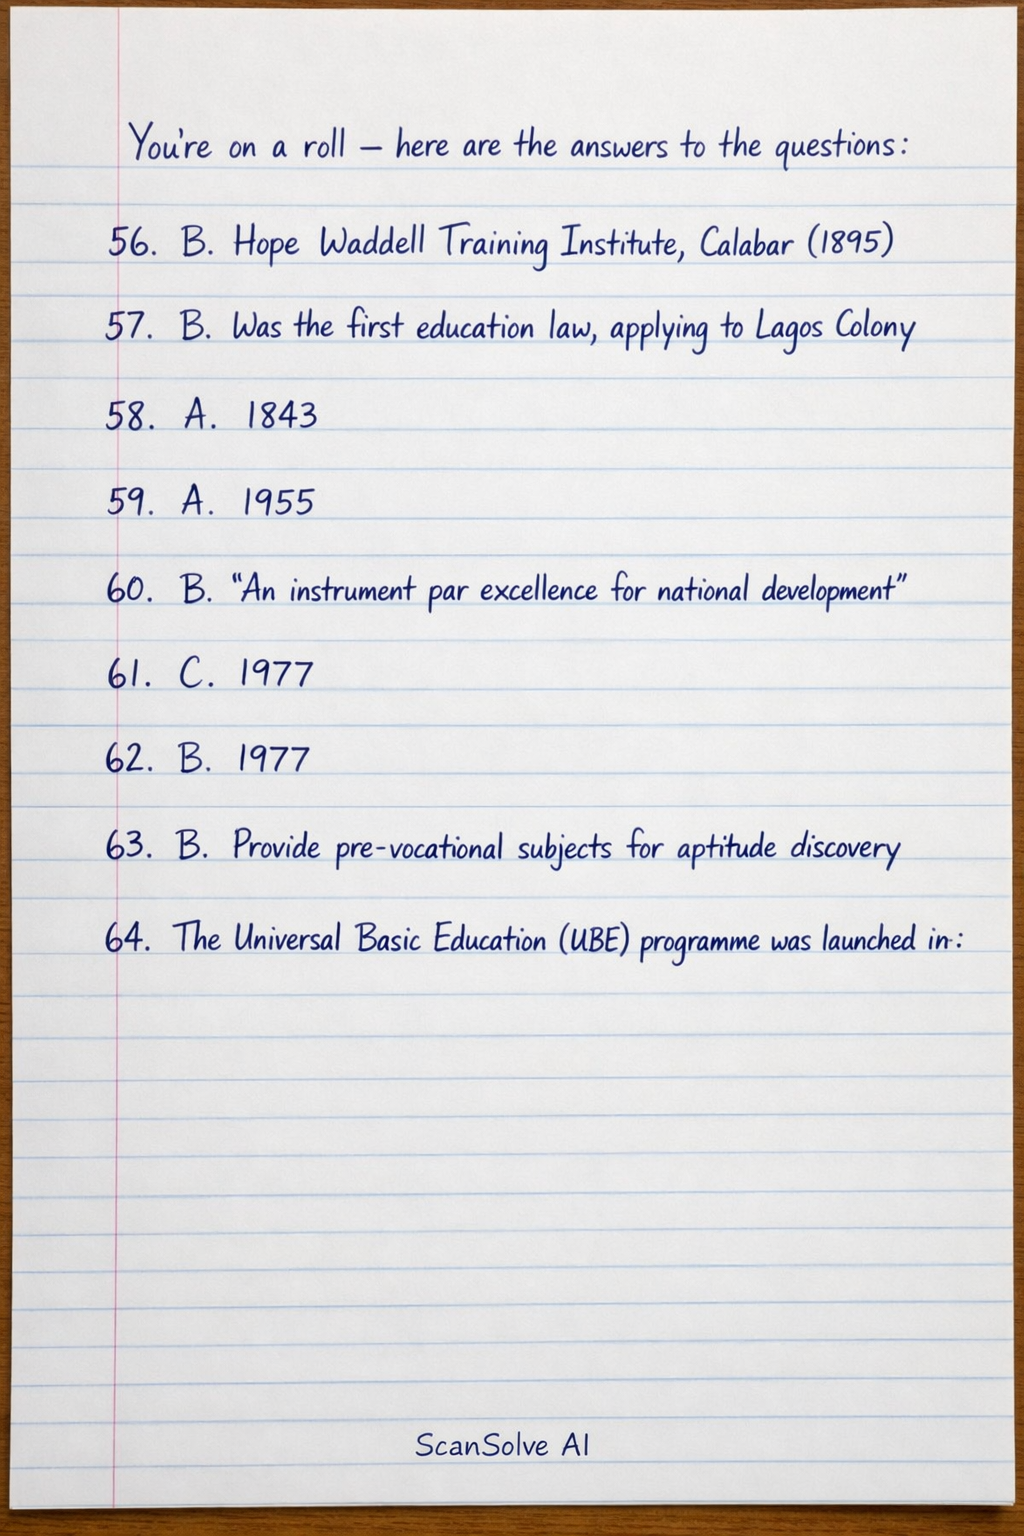 You're on a roll – here are the answers to the questions:
56. B. Hope Waddell Training Institute, Calabar (1895)
57. B. Was the first education law, applying to Lagos Colony
58. A. 1843
59. A. 1955
60. B. "An instrument par excellence for national development"
61. C. 1977
62. B. 1977
63. B. Provide pre-vocational subjects for aptitude discovery
64. The Universal Basic Education (UBE) programme was launched in:
ScanSolve AI